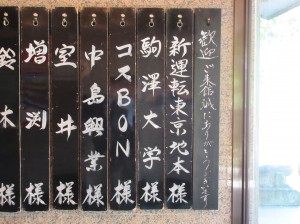 歓迎 ご来館誠にありがとうございます
新運転東京地本 様
駒澤大学 様
コスBON 様
中島興業 様
室井 様
増渕 様
鈴木 様